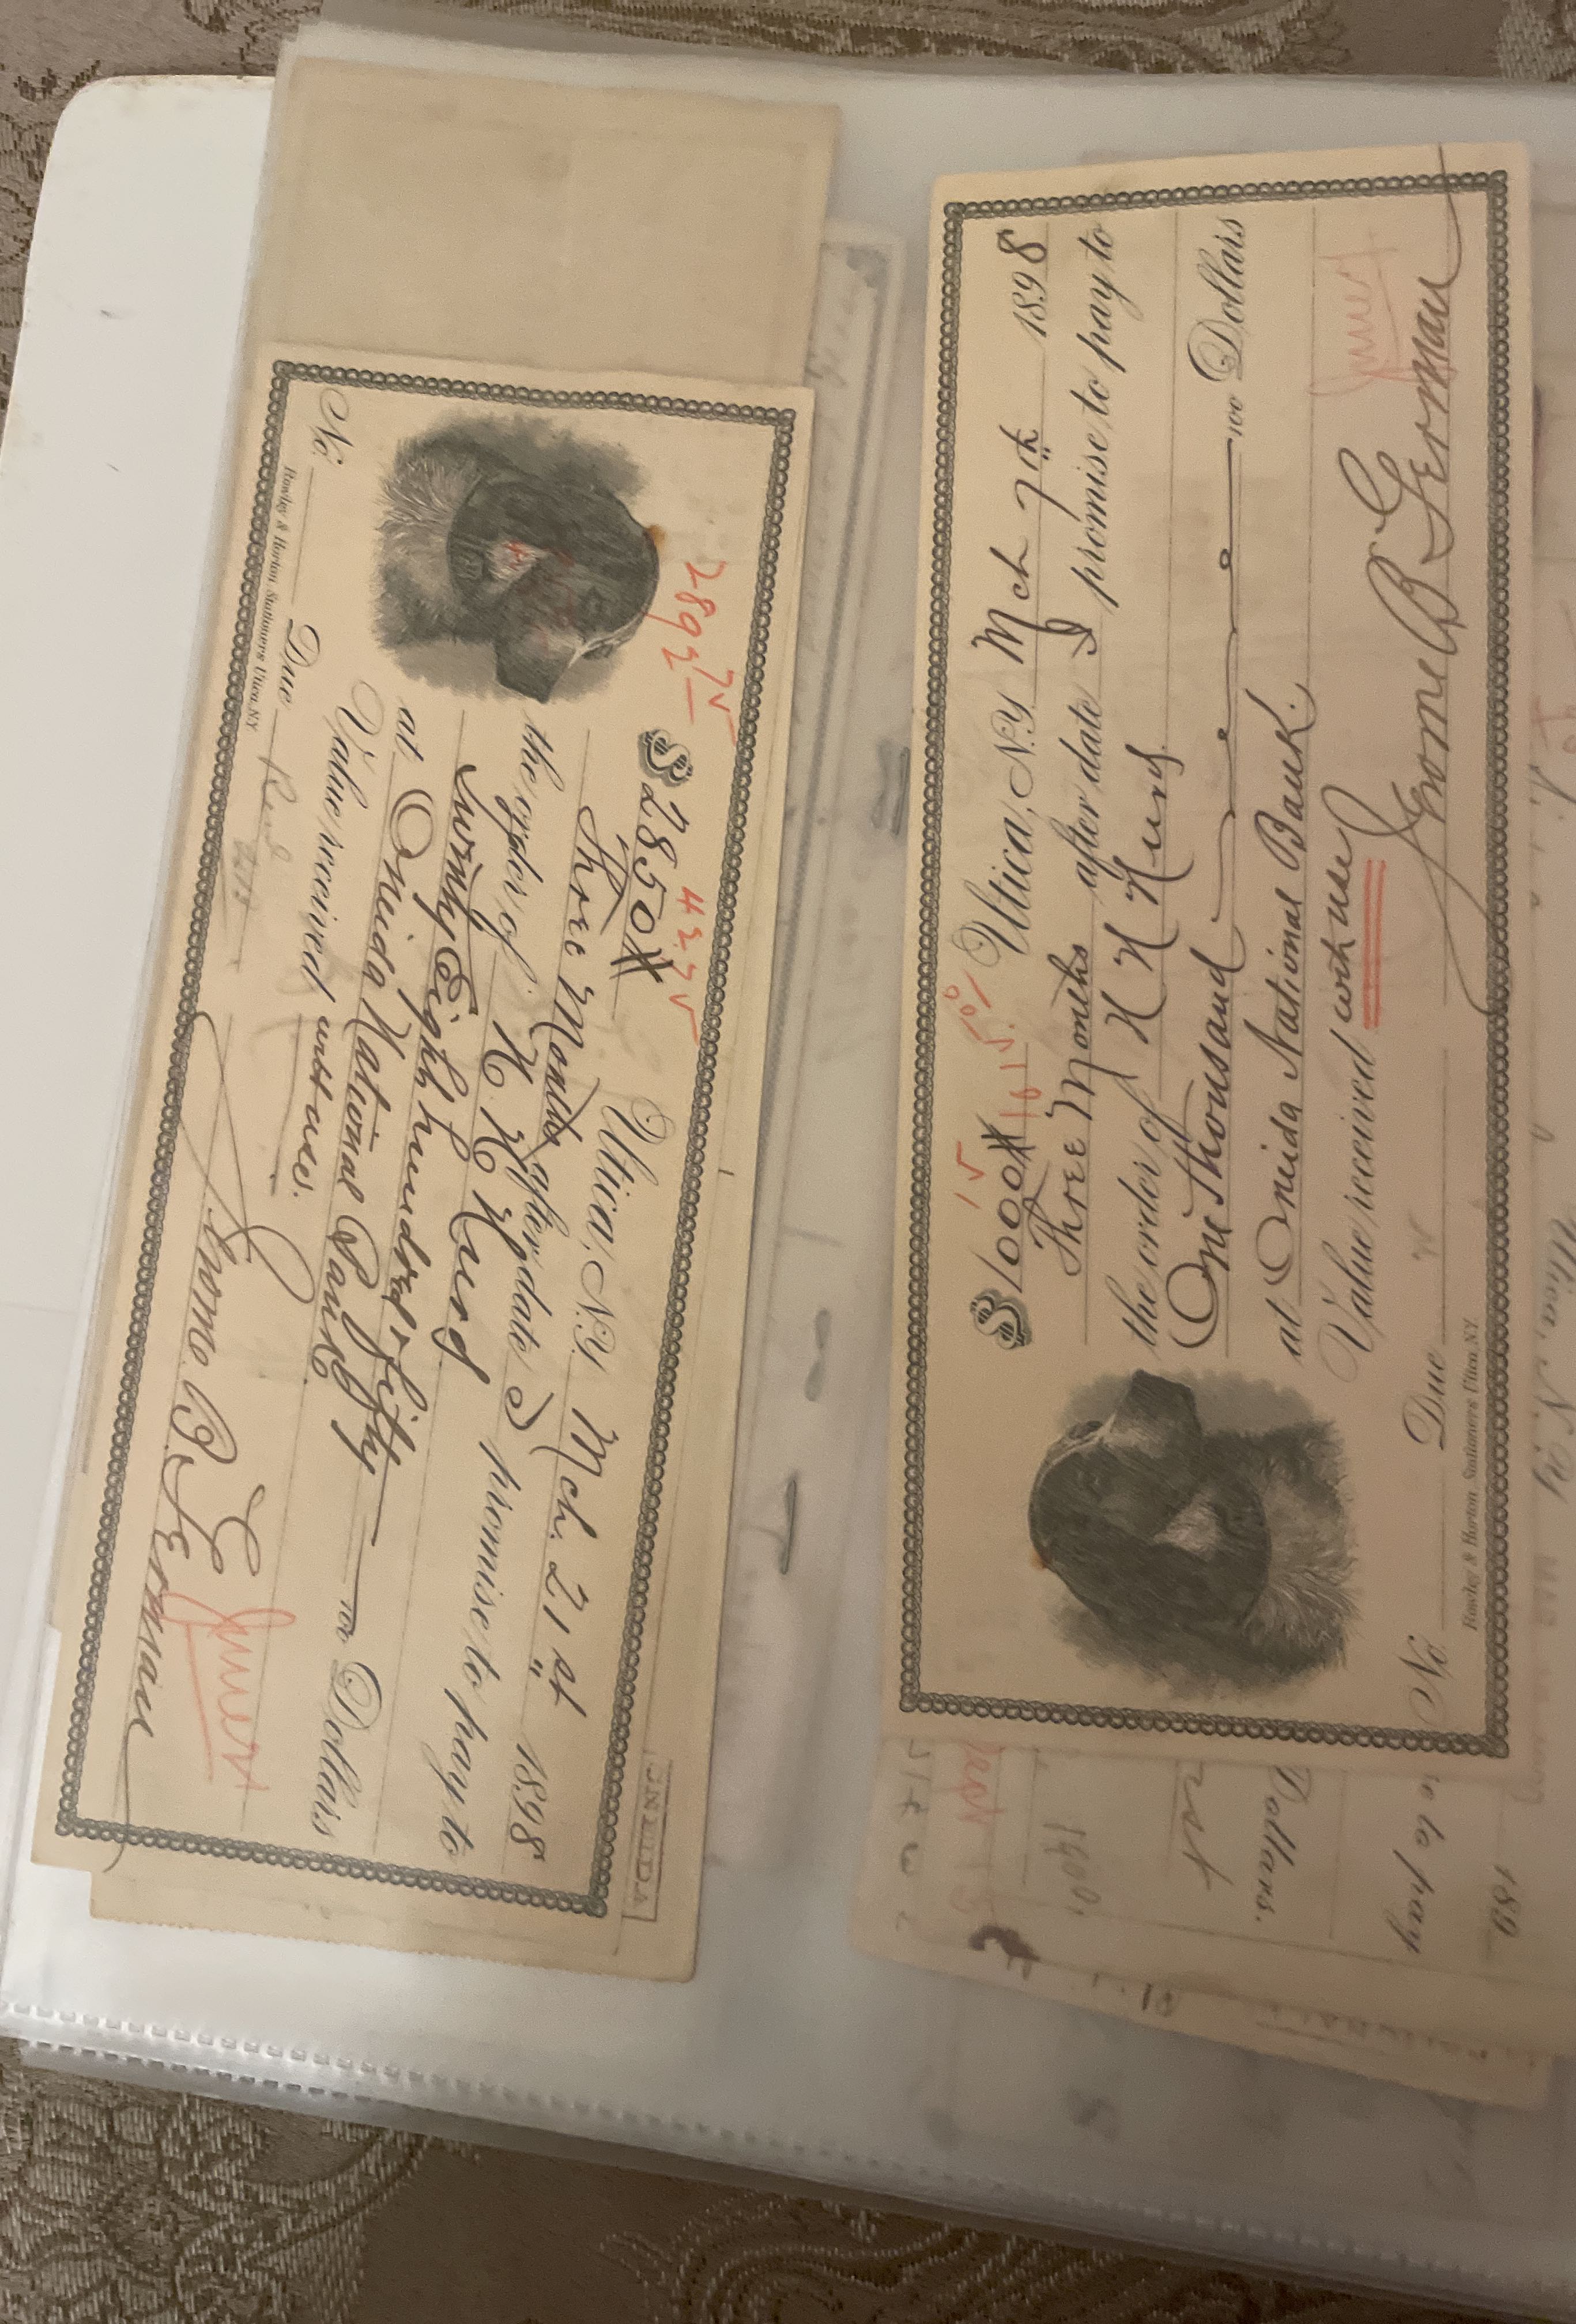 No.
Rowley & Horton Stationers Utica, N.Y.
Due
2892 75
42.75
$2850
Utica, N.Y. Mch. 21st 1898
Three Months after date I promise to pay to
the order of H. H. Hurd
Twenty Eight hundred & fifty 100 Dollars
at Oneida National Bank
Value received with use.
Jerome B. German
$1000 15
1015. %
Utica, N.Y. Mch 7th 1898
Three Months after date I promise to pay to
the order of H H Hurd.
One Thousand 100 Dollars
at Oneida National Bank.
Value received with use
Jerome B German
No. Due
Rowley & Horton Stationers Utica, N.Y.
1900.
Dollars.
to pay
189
Utica, N. Y.